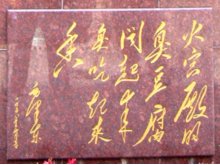 火宫殿的
臭豆腐
闻起来
臭吃起來
香
毛泽东